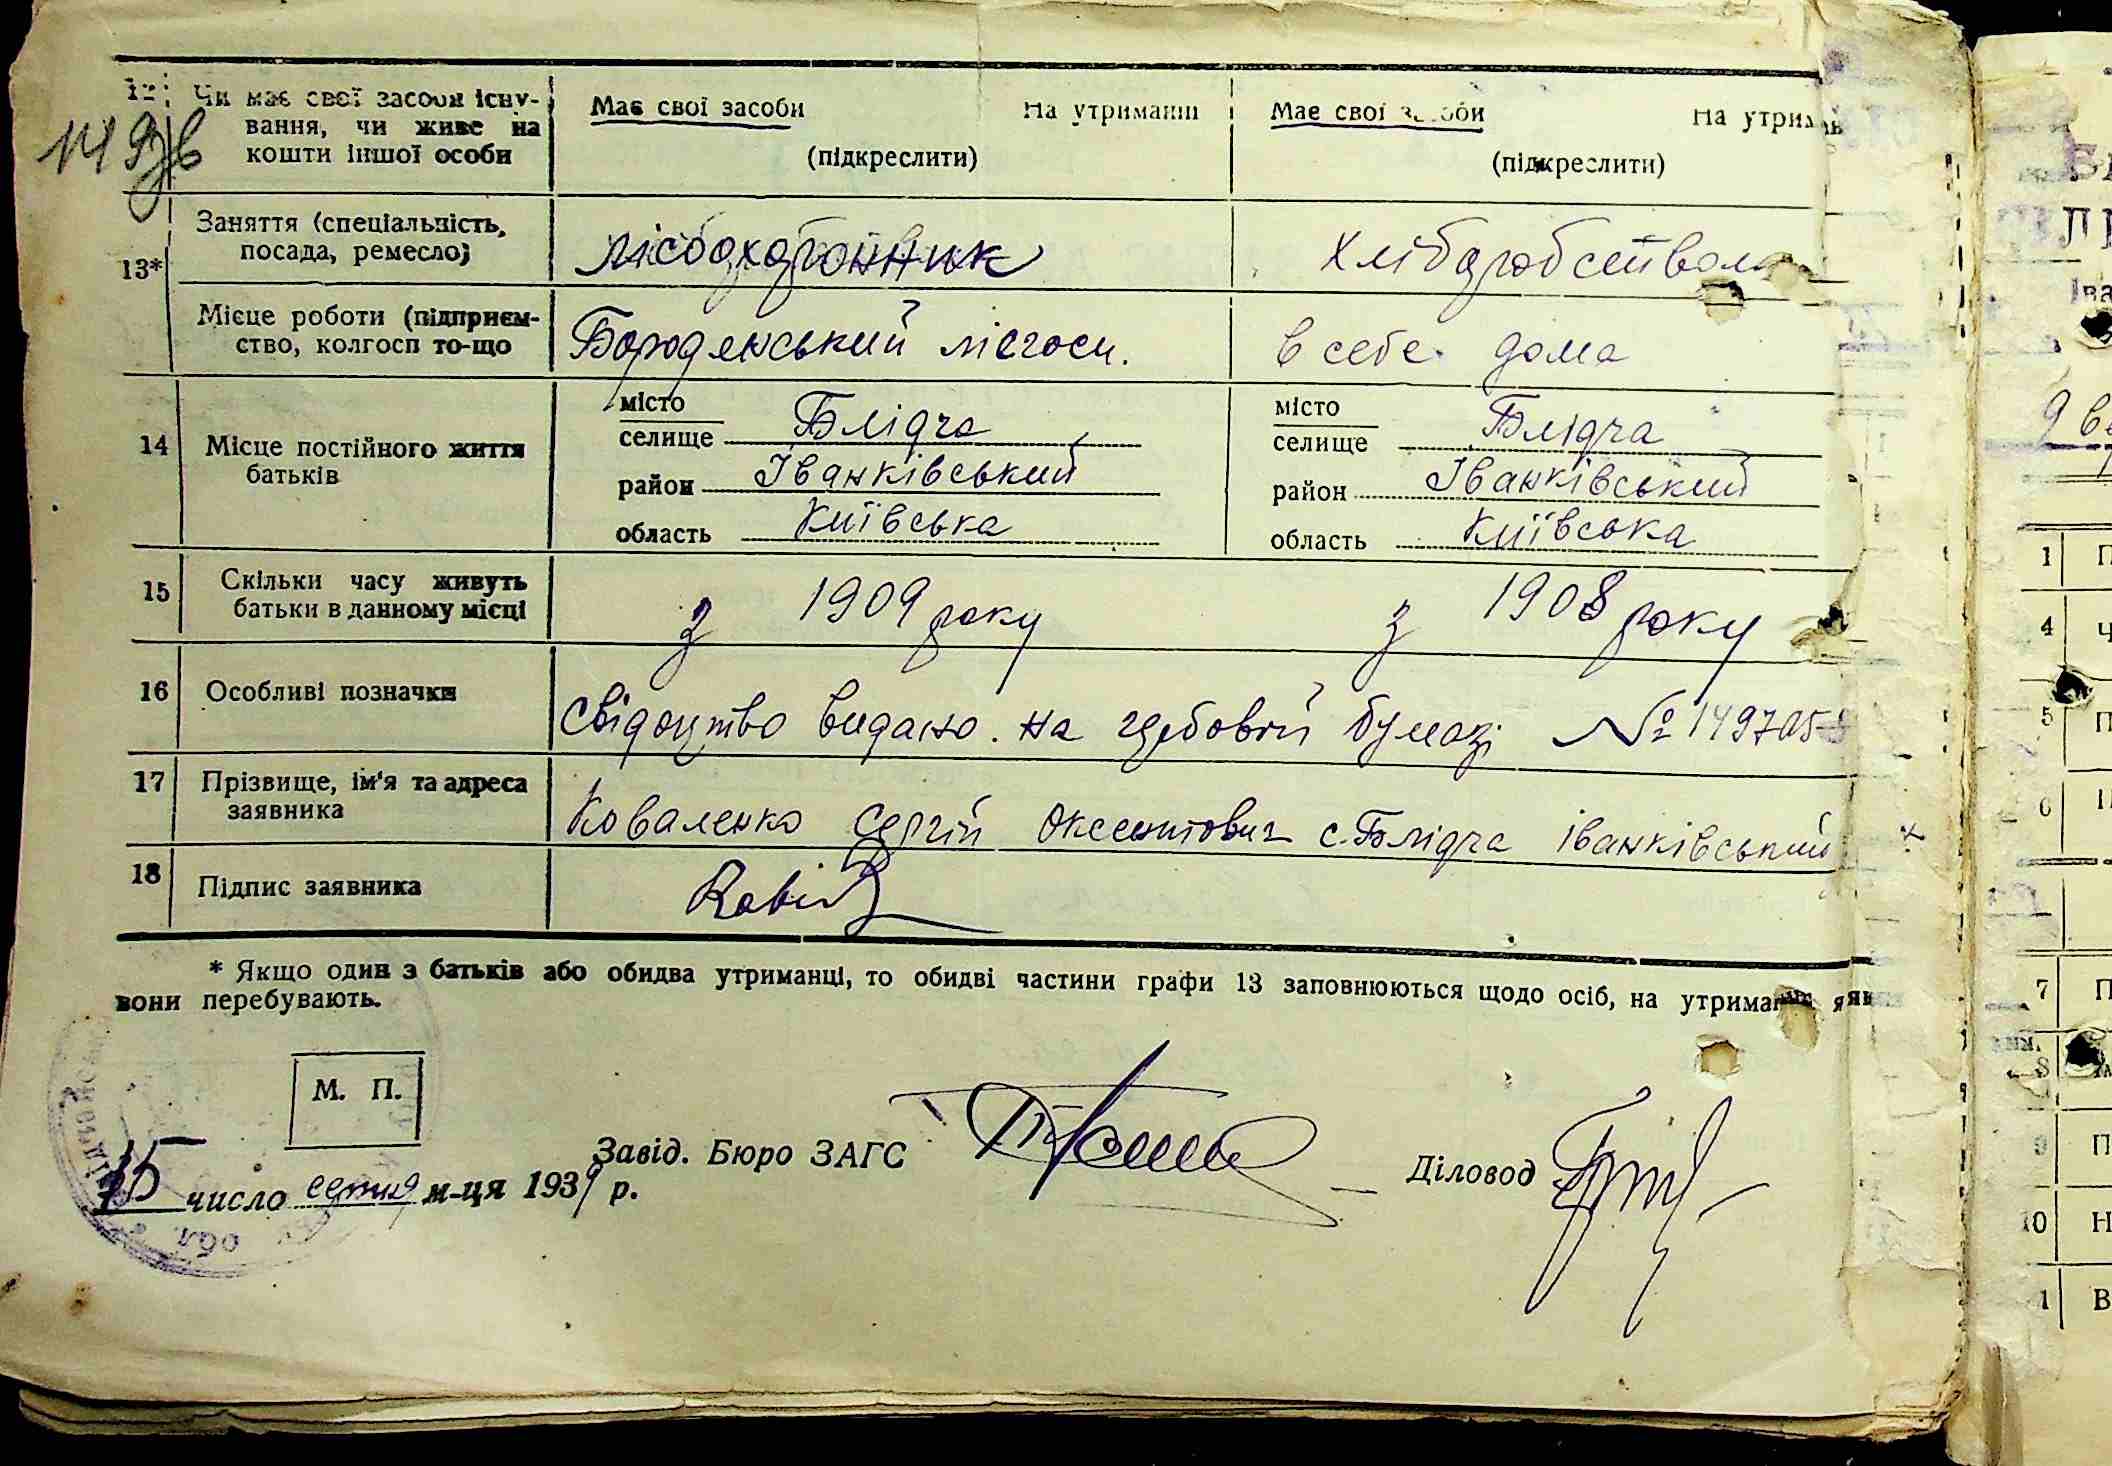 12 Чи має свої засоби існу-
вання, чи живе на
кошти іншої особи
Має свої засоби На утриманні
(підкреслити)
Має свої засоби На утриман
(підкреслити)
149 зв
13*
Заняття (спеціальність,
посада, ремесло)
лісоохоронник
хліборобством
Місце роботи (підприєм-
ство, колгосп то-що
Бородянський лісгосп.
в себе дома
14 Місце постійного життя
батьків
місто
селище Блідча
район Іванківський
область Київська
місто
селище Блідча
район Іванківський
область Київська
15 Скільки часу живуть
батьки в данному місці
з 1909 року
з 1908 року
16 Особливі позначки
Свідоцтво видано на гербовій бумазі № 149705
17 Прізвище, ім'я та адреса
заявника
Коваленко Сергій Оксентович с. Блідча Іванківський
18 Підпис заявника
* Якщо один з батьків або обидва утриманці, то обидві частини графи 13 заповнюються щодо осіб, на утриманні яких
вони перебувають.
М. П.
Завід. Бюро ЗАГС
Діловод
15 число м-ця 1939 р.
обл.
1 П
4 Ч
5 П
6
7 П
8
9 П
10 Н
1 В